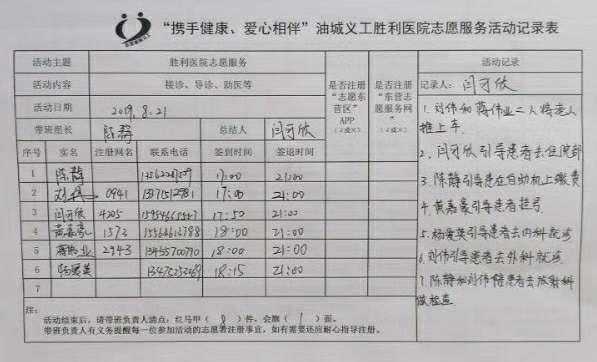 “携手健康、爱心相伴”油城义工胜利医院志愿服务活动记录表
活动主题 胜利医院志愿服务
活动内容 接诊、导诊、助医等
活动日期 2019.8.21
带班组长 陈静 总结人 闫可欣
是否注册“志愿东营区”APP（√或×）
是否注册“东营志愿服务网”（√或×）
序号 实名 注册网名 联系电话 签到时间 签退时间
1 陈静 17:00 21:00
2 刘伟 0941 17:00 21:00
3 闫可欣 4205 17:50 21:00
4 黄嘉豪 1573 18:00 21:00
5 蒋伟业 2943 13455700790 18:00 21:00
6 杨爱英 18:15 21:00
7
注：
活动结束后，请带班负责人清点：红马甲（8）件，会旗（1）面。
带班负责人有义务提醒每一位参加活动的志愿者注册事宜，如有需要还应耐心指导注册。
活动记录
记录人：闫可欣
1.刘伟和蒋伟业二人将老人
推上车.
2.闫可欣引导患者去住院部
3.陈静引导患在自助机上缴费
4.黄嘉豪引导患者挂号
5.杨爱英引导患者去内科就诊
6.刘伟引导患者去外科就诊
7.陈静和刘伟陪患者去放射科
做检查